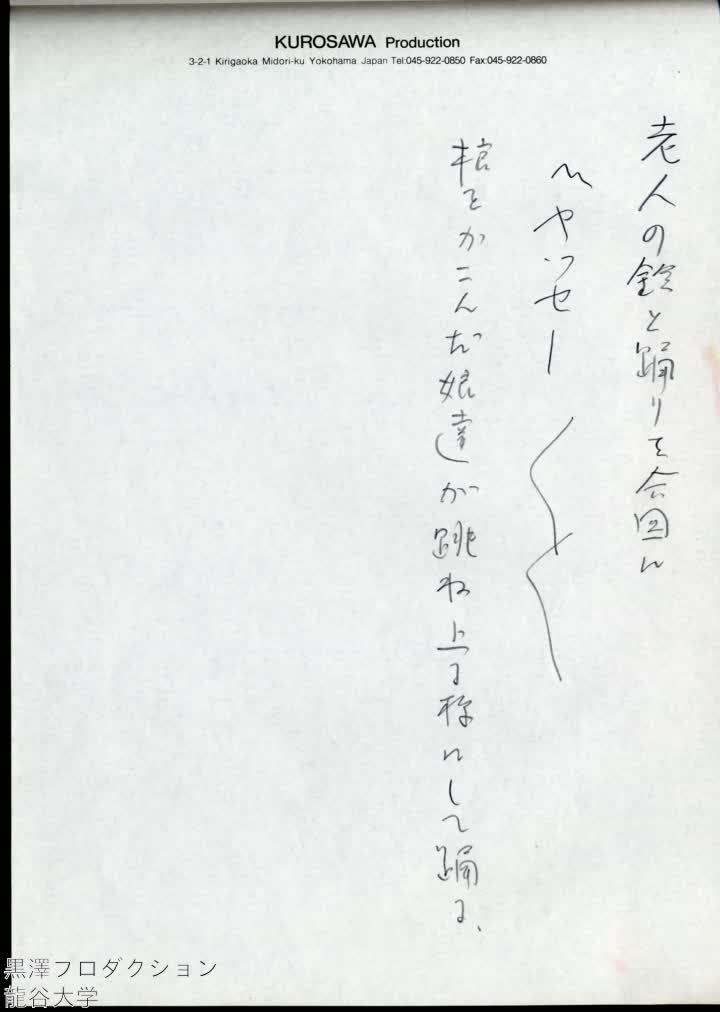 KUROSAWA Production
3-2-1 Kirigaoka Midori-ku Yokohama Japan Tel:045-922-0850 Fax:045-922-0860
老人の鈴と踊りを合図に
〽ヤッセー 〱
棺をかこんだ娘達が跳ね上る様にして踊る、
黒澤プロダクション
龍谷大学